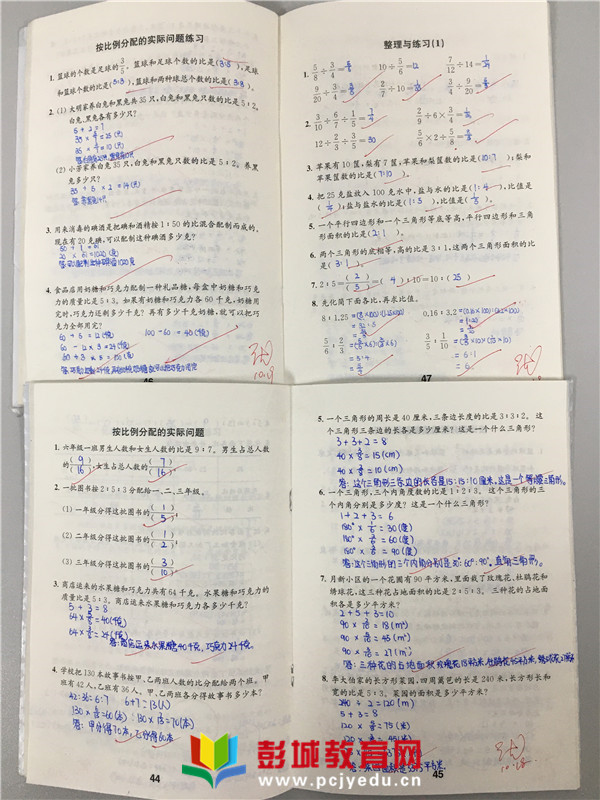 按比例分配的实际问题练习
1. 篮球的个数是足球的3/5。篮球和足球个数的比是(3:5),足球
和篮球个数的比是(5:3),篮球和两种球总个数的比是(3:8)。
2. (1) 大明家养白兔和黑兔共35只,白兔和黑兔只数的比是5:2。
白兔、黑兔各有多少只?
5+2=7
(2) 小芳家养白兔35只,白兔和黑兔只数的比是5:2。养黑
兔多少只?
35÷5×2=14(只)
3. 用来消毒的碘酒是把碘和酒精按1:50的比混合配制而成的。
现在有20克碘,可以配制这种碘酒多少克?
50+1=51
20×51=1020(克)
4. 食品店用奶糖和巧克力配制一种礼品糖,每盒中奶糖和巧克
力的质量比是5:3。如果有奶糖和巧克力各60千克,奶糖用
完时,巧克力还剩多少千克?再有多少千克奶糖,就可以把巧
克力全部用完?
60÷5=12(千克)
60-12×3=24(千克)
60÷3×5=100(千克)
100-60=40(千克)
46
整理与练习(1)
1. 5/8÷3/4=5/6 10÷5/6=12 7/12÷14=1/24
9/20÷3/4=3/5 2/7÷10= 3/4÷9/20=5/3
2. 3/10÷6/7÷1/5=7/4 2/9÷6×3/4=1/36
12÷2/3÷3/5=30 5/6×2÷5/8=8/3
3. 苹果有10筐,梨有7筐,苹果和梨筐数的比是(10:7);梨和
苹果筐数的比是(7:10)。
4. 把25克盐放入100克水中,盐与水的比是(1:4),比值是
(1/4);盐与盐水的比是(1:5),比值是(1/5)。
5. 一个平行四边形和一个三角形等底等高,平行四边形和三角
形面积的比是(2:1)。
6. 两个三角形的底相等,高的比是3:1,这两个三角形面积的比
是(3:1)。
7. 2:5=(2)/(5)=(4):10=10:(25)
8. 先化简下面各比,再求比值。
8:1.25 0.16:3.2
5/6:2/3 3/5:1/10
47
按比例分配的实际问题
1. 六年级一班男生人数和女生人数的比是9:7。男生占总人数
的(9)/(16),女生占总人数的(7)/(16)。
2. 一批图书按2:5:3分配给一、二、三年级。
(1) 一年级分得这批图书的(1)/(5)。
(2) 二年级分得这批图书的(1)/(2)。
(3) 三年级分得这批图书的(3)/(10)。
3. 商店运来的水果糖和巧克力共有64千克。水果糖和巧克力的
质量比是5:3。商店运来水果糖和巧克力各多少千克?
5+3=8
64×5/8=40(千克)
64×3/8=24(千克)
答:商店运来水果糖40千克,巧克力24千克。
4. 学校把130本故事书按甲、乙两班人数的比分配给两个班。甲
班有42人,乙班有36人。甲、乙两班各分得故事书多少本?
42:36=7:6 6+7=13(人)
答:甲分得70本,乙分得60本
44
5. 一个三角形的周长是40厘米,三条边长度的比是3:3:2。这
个三角形三条边的长各是多少厘米?这是一个什么三角形?
3+3+2=8
40×3/8=15(cm)
40×2/8=10(cm)
答:这个三角形三条边的长各是15:15:10厘米,这是一个等腰三角形。
6. 一个三角形,三个内角度数的比是1:2:3。这个三角形的三
个内角分别是多少度?这是一个什么三角形?
1+2+3=6
180°×1/6=30(度)
180°×2/6=60(度)
180°×3/6=90(度)
7. 月新小区的一个花圃有90平方米,里面栽了玫瑰花、杜鹃花和
绣球花,这三种花占地面积的比是2:5:3。三种花的占地面
积各是多少平方米?
2+5+3=10
90×2/10=18(m²)
90×5/10=45(m²)
90×3/10=27(m²)
8. 李大伯家的长方形菜园,四周篱笆的长是240米,长方形长和
宽的比是5:3。菜园的面积是多少平方米?
240÷2=120(m)
5+3=8
120×5/8=75(米)
120×3/8=45(米)
45
彭城教育网
www.pcjyedu.cn